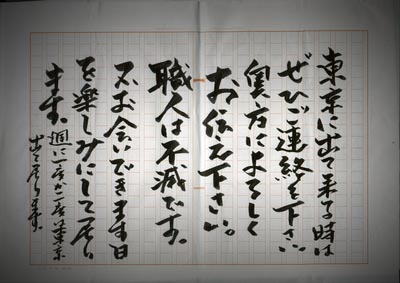 東京に出て来る時は
ぜひご連絡を下さい
奥方によろしく
お伝え下さい。
職人は不滅です。
又お会いできます日
を楽しみにして居り
ます。
週に一度か二度は東京
出て居ります。